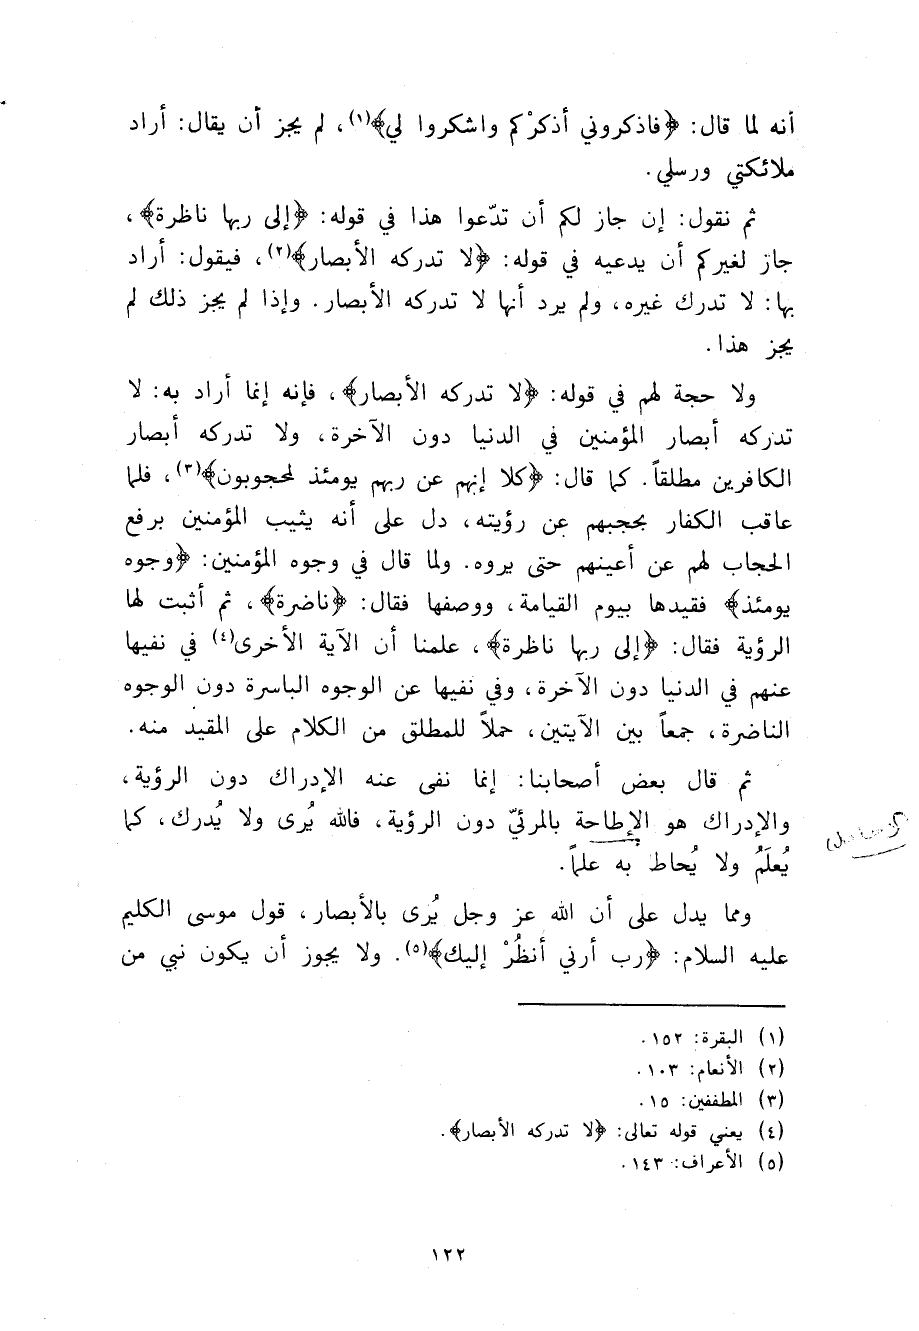 أنه لما قال: ﴿فاذكروني أذكرْكم واشكروا لي﴾(١)، لم يجز أن يقال: أراد
ملائكتي ورسلي.
ثم نقول: إن جاز لكم أن تدّعوا هذا في قوله: ﴿إلى ربها ناظرة﴾،
جاز لغيركم أن يدعيه في قوله: ﴿لا تدركه الأبصار﴾(٢)، فيقول: أراد
بها: لا تدرك غيره، ولم يرد أنها لا تدركه الأبصار. وإذا لم يجز ذلك لم
يجز هذا.
ولا حجة لهم في قوله: ﴿لا تدركه الأبصار﴾، فإنه إنما أراد به: لا
تدركه أبصار المؤمنين في الدنيا دون الآخرة، ولا تدركه أبصار
الكافرين مطلقاً. كما قال: ﴿كلا إنهم عن ربهم يومئذ لمحجوبون﴾(٣)، فلما
عاقب الكفار بحجبهم عن رؤيته، دل على أنه يثيب المؤمنين برفع
الحجاب لهم عن أعينهم حتى يروه. ولما قال في وجوه المؤمنين: ﴿وجوه
يومئذ﴾ فقيدها بيوم القيامة، ووصفها فقال: ﴿ناضرة﴾، ثم أثبت لها
الرؤية فقال: ﴿إلى ربها ناظرة﴾، علمنا أن الآية الأخرى(٤) في نفيها
عنهم في الدنيا دون الآخرة، وفي نفيها عن الوجوه الباسرة دون الوجوه
الناضرة، جمعاً بين الآيتين، حملاً للمطلق من الكلام على المقيد منه.
ثم قال بعض أصحابنا: إنما نفى عنه الإدراك دون الرؤية،
والإدراك هو الإطاحة بالمرئيّ دون الرؤية، فالله يُرى ولا يُدرك، كما
يُعلَمُ ولا يُحاط به علماً.
ومما يدل على أن الله عز وجل يُرى بالأبصار، قول موسى الكليم
عليه السلام: ﴿رب أرني أنظُرْ إليك﴾(٥). ولا يجوز أن يكون نبي من
(١) البقرة: ١٥٢.
(٢) الأنعام: ١٠٣.
(٣) المطففين: ١٥.
(٤) يعني قوله تعالى: ﴿لا تدركه الأبصار﴾.
(٥) الأعراف: ١٤٣.
١٢٢